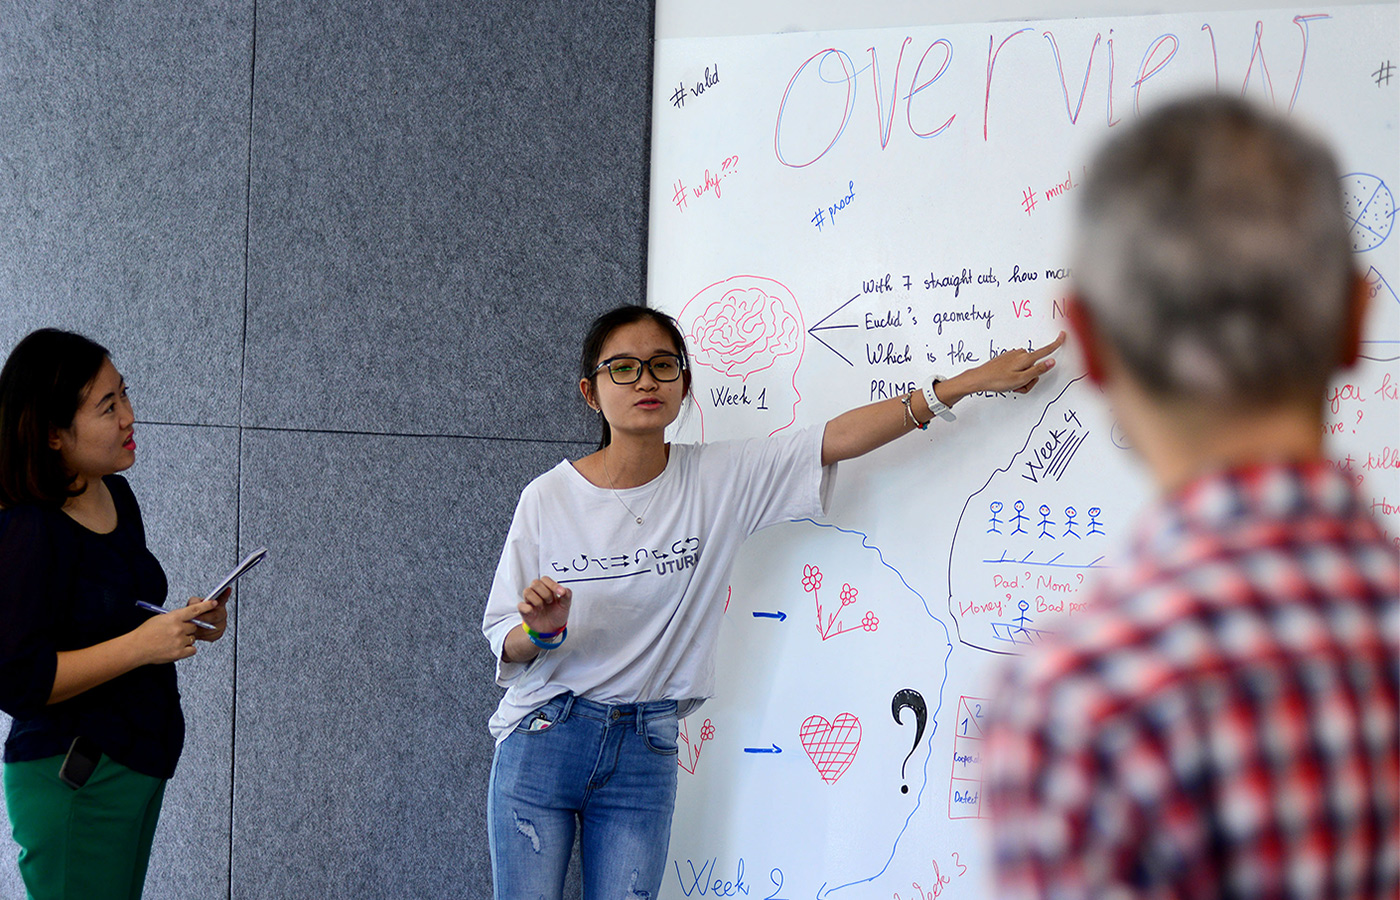 Overview
# valid
#
# why???
# proof
# mind_
With 7 straight cuts, how man
Euclid's geometry VS. N
Which is the biggest
PRIME
Week 1
Week 4
Dad? Mom?
Honey? Bad pers
UTURN
you ki
1 2
Cooperat
Defect
Week 2
Week 3